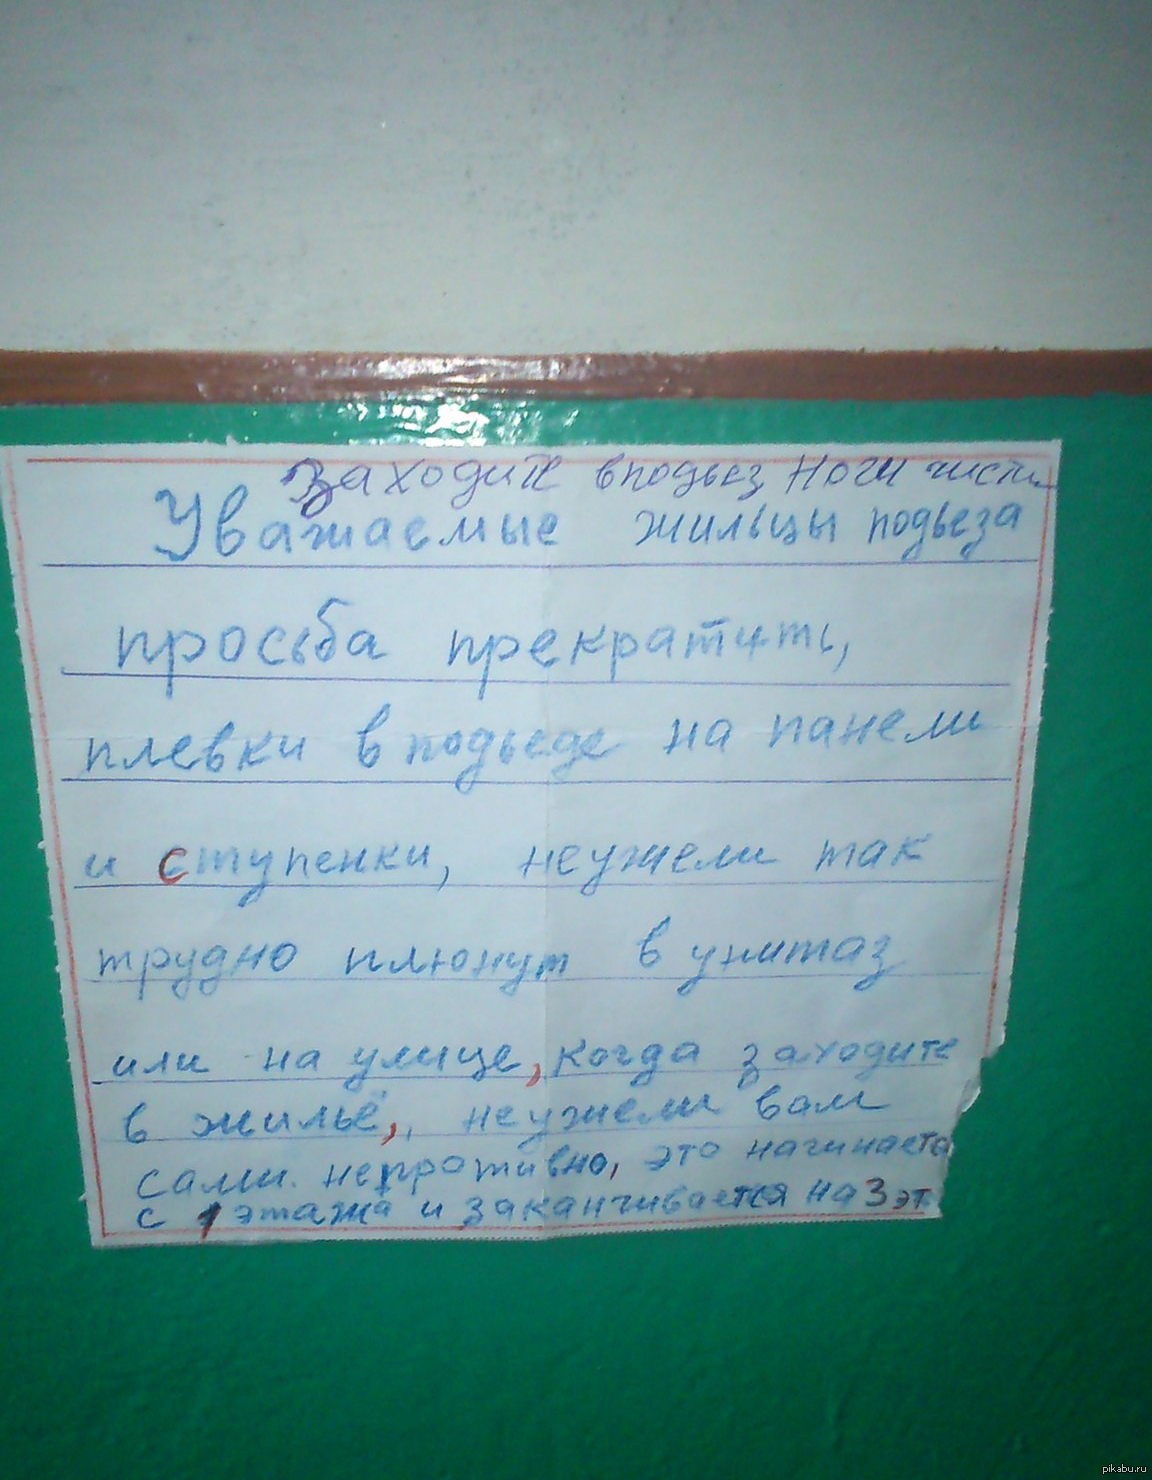 заходите вподьез Ноги чисти
Уважаемые жильцы подьеза
просьба прекратить,
плевки в подьезде на панели
и ступенки, неужели так
трудно плюнут в унитаз
или на улице, когда заходите
в жильё, неужели вам
сами. непротивно, это начинаета
с 1 этажа и заканчивается на 3 эт.
pikabu.ru